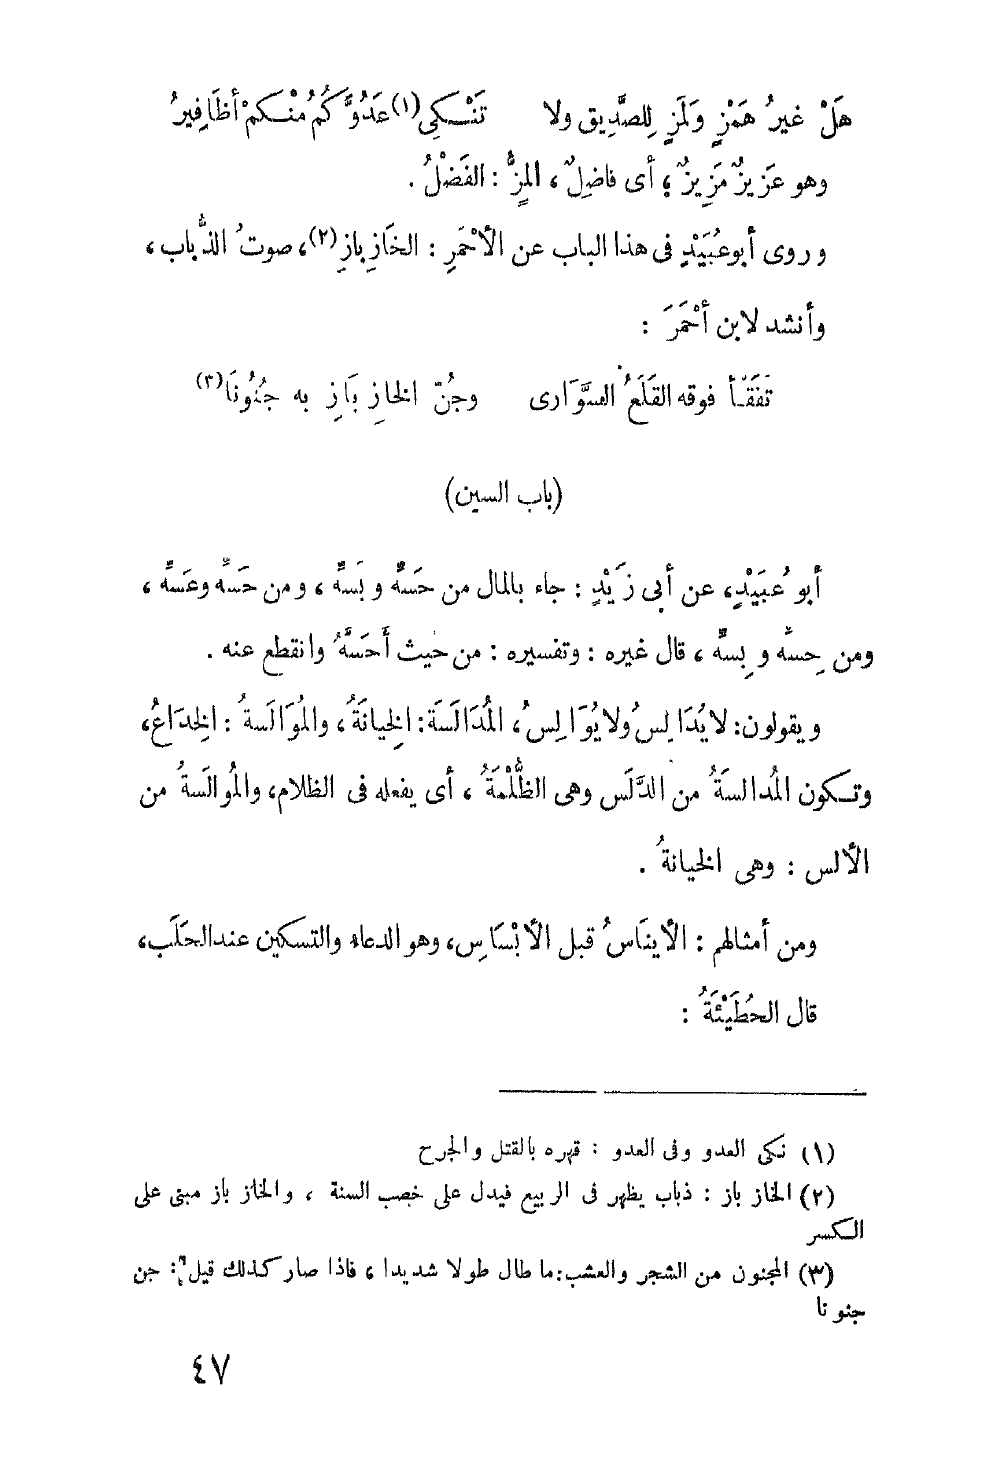 هَلْ غيرُ هَمْزٍ وَلَمَزٍ لِلصَّدِيق ولا تَنْكِى(١) عَدُوَّكُمُ مُنْكمْ أظَافِيرُ
وهو عَزِيزٌ مَزِيزٌ ؛ أى فاضِلٌ ، المِزُّ : الفَضْلُ .
وروى أبو عُبَيْدٍ فى هذا الباب عن الأحْمَرِ : الخَازِبازِ(٢)، صوتُ الذُّباب ،
وأنشد لابن أحْمَرَ :
تَفَقَّأ فوقه القَلَعُ السَّوَارى وجُنّ الخازِ بَازِ به جُنُونَا(٣)
(باب السين)
أبو عُبَيْدٍ، عن أبى زَيْدٍ : جاء بالمال من حَسِّهِ وبَسِّهِ ، ومن حَسِّه وعَسِّه ،
ومن حِسِّه وبِسِّه ، قال غيره : وتفسيره : من حَيث أَحَسَّهُ وانقطع عنه .
ويقولون: لا يُدَالِسُ ولا يُوَالِسُ، المُدَالَسَة: الِخيانَةُ، والمُوَالَسةُ : الِخدَاعُ،
وتكون المُدالسَةُ من الدَّلَس وهى الظُّلْمَةُ ، أى يفعله فى الظلام، والمُوالَسةُ من
الألس : وهى الخيانةُ .
ومن أمثالهم : الأينَاسُ قبل الأبْسَاسِ، وهو الدعاء والتسكين عند الحَلَب،
قال الحُطَيْئَةُ :
(١) نكى العدو وفى العدو : قهره بالقتل والجرح
(٢) الخاز باز : ذباب يظهر فى الربيع فيدل على خصب السنة ، والخاز باز مبنى على
الكسر
(٣) المجنون من الشجر والعشب: ما طال طولا شديدا ، فاذا صار كذلك قيل : جن
جنونا
٤٧